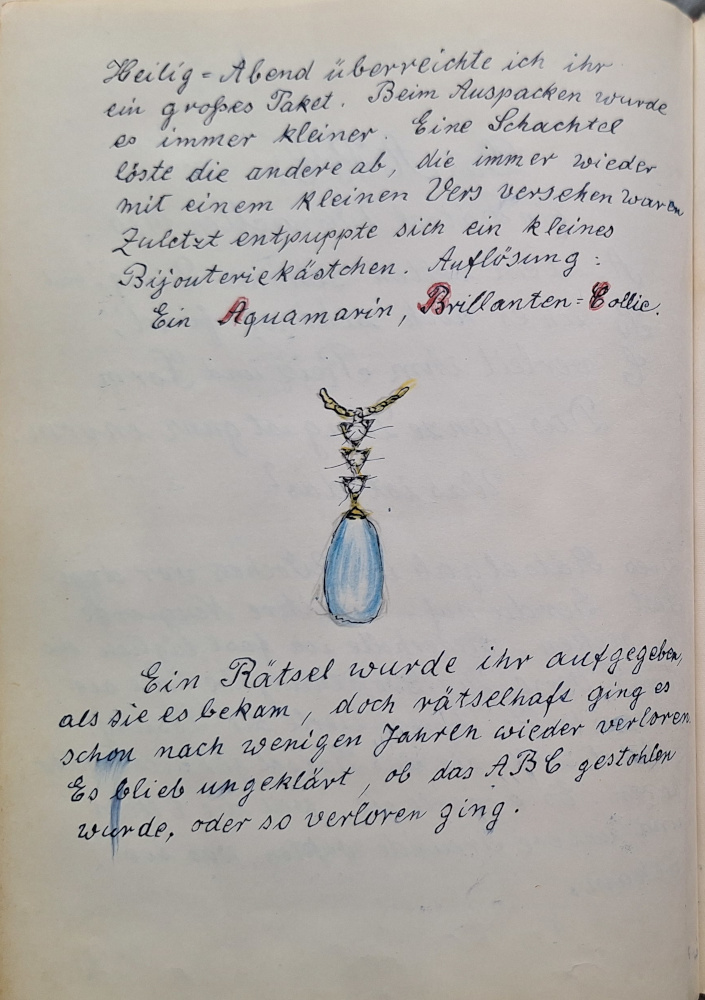 Heilig = Abend überreichte ich ihr
ein großes Paket. Beim Auspacken wurde
es immer kleiner. Eine Schachtel
löste die andere ab, die immer wieder
mit einem kleinen Vers versehen waren
Zuletzt entpuppte sich ein kleines
Bijouteriekästchen. Auflösung:
Ein Aquamarin, Brillanten = Collie.
Ein Rätsel wurde ihr aufgegeben,
als sie es bekam, doch rätselhaft ging es
schon nach wenigen Jahren wieder verloren.
Es blieb ungeklärt, ob das ABC gestohlen
wurde, oder so verloren ging.